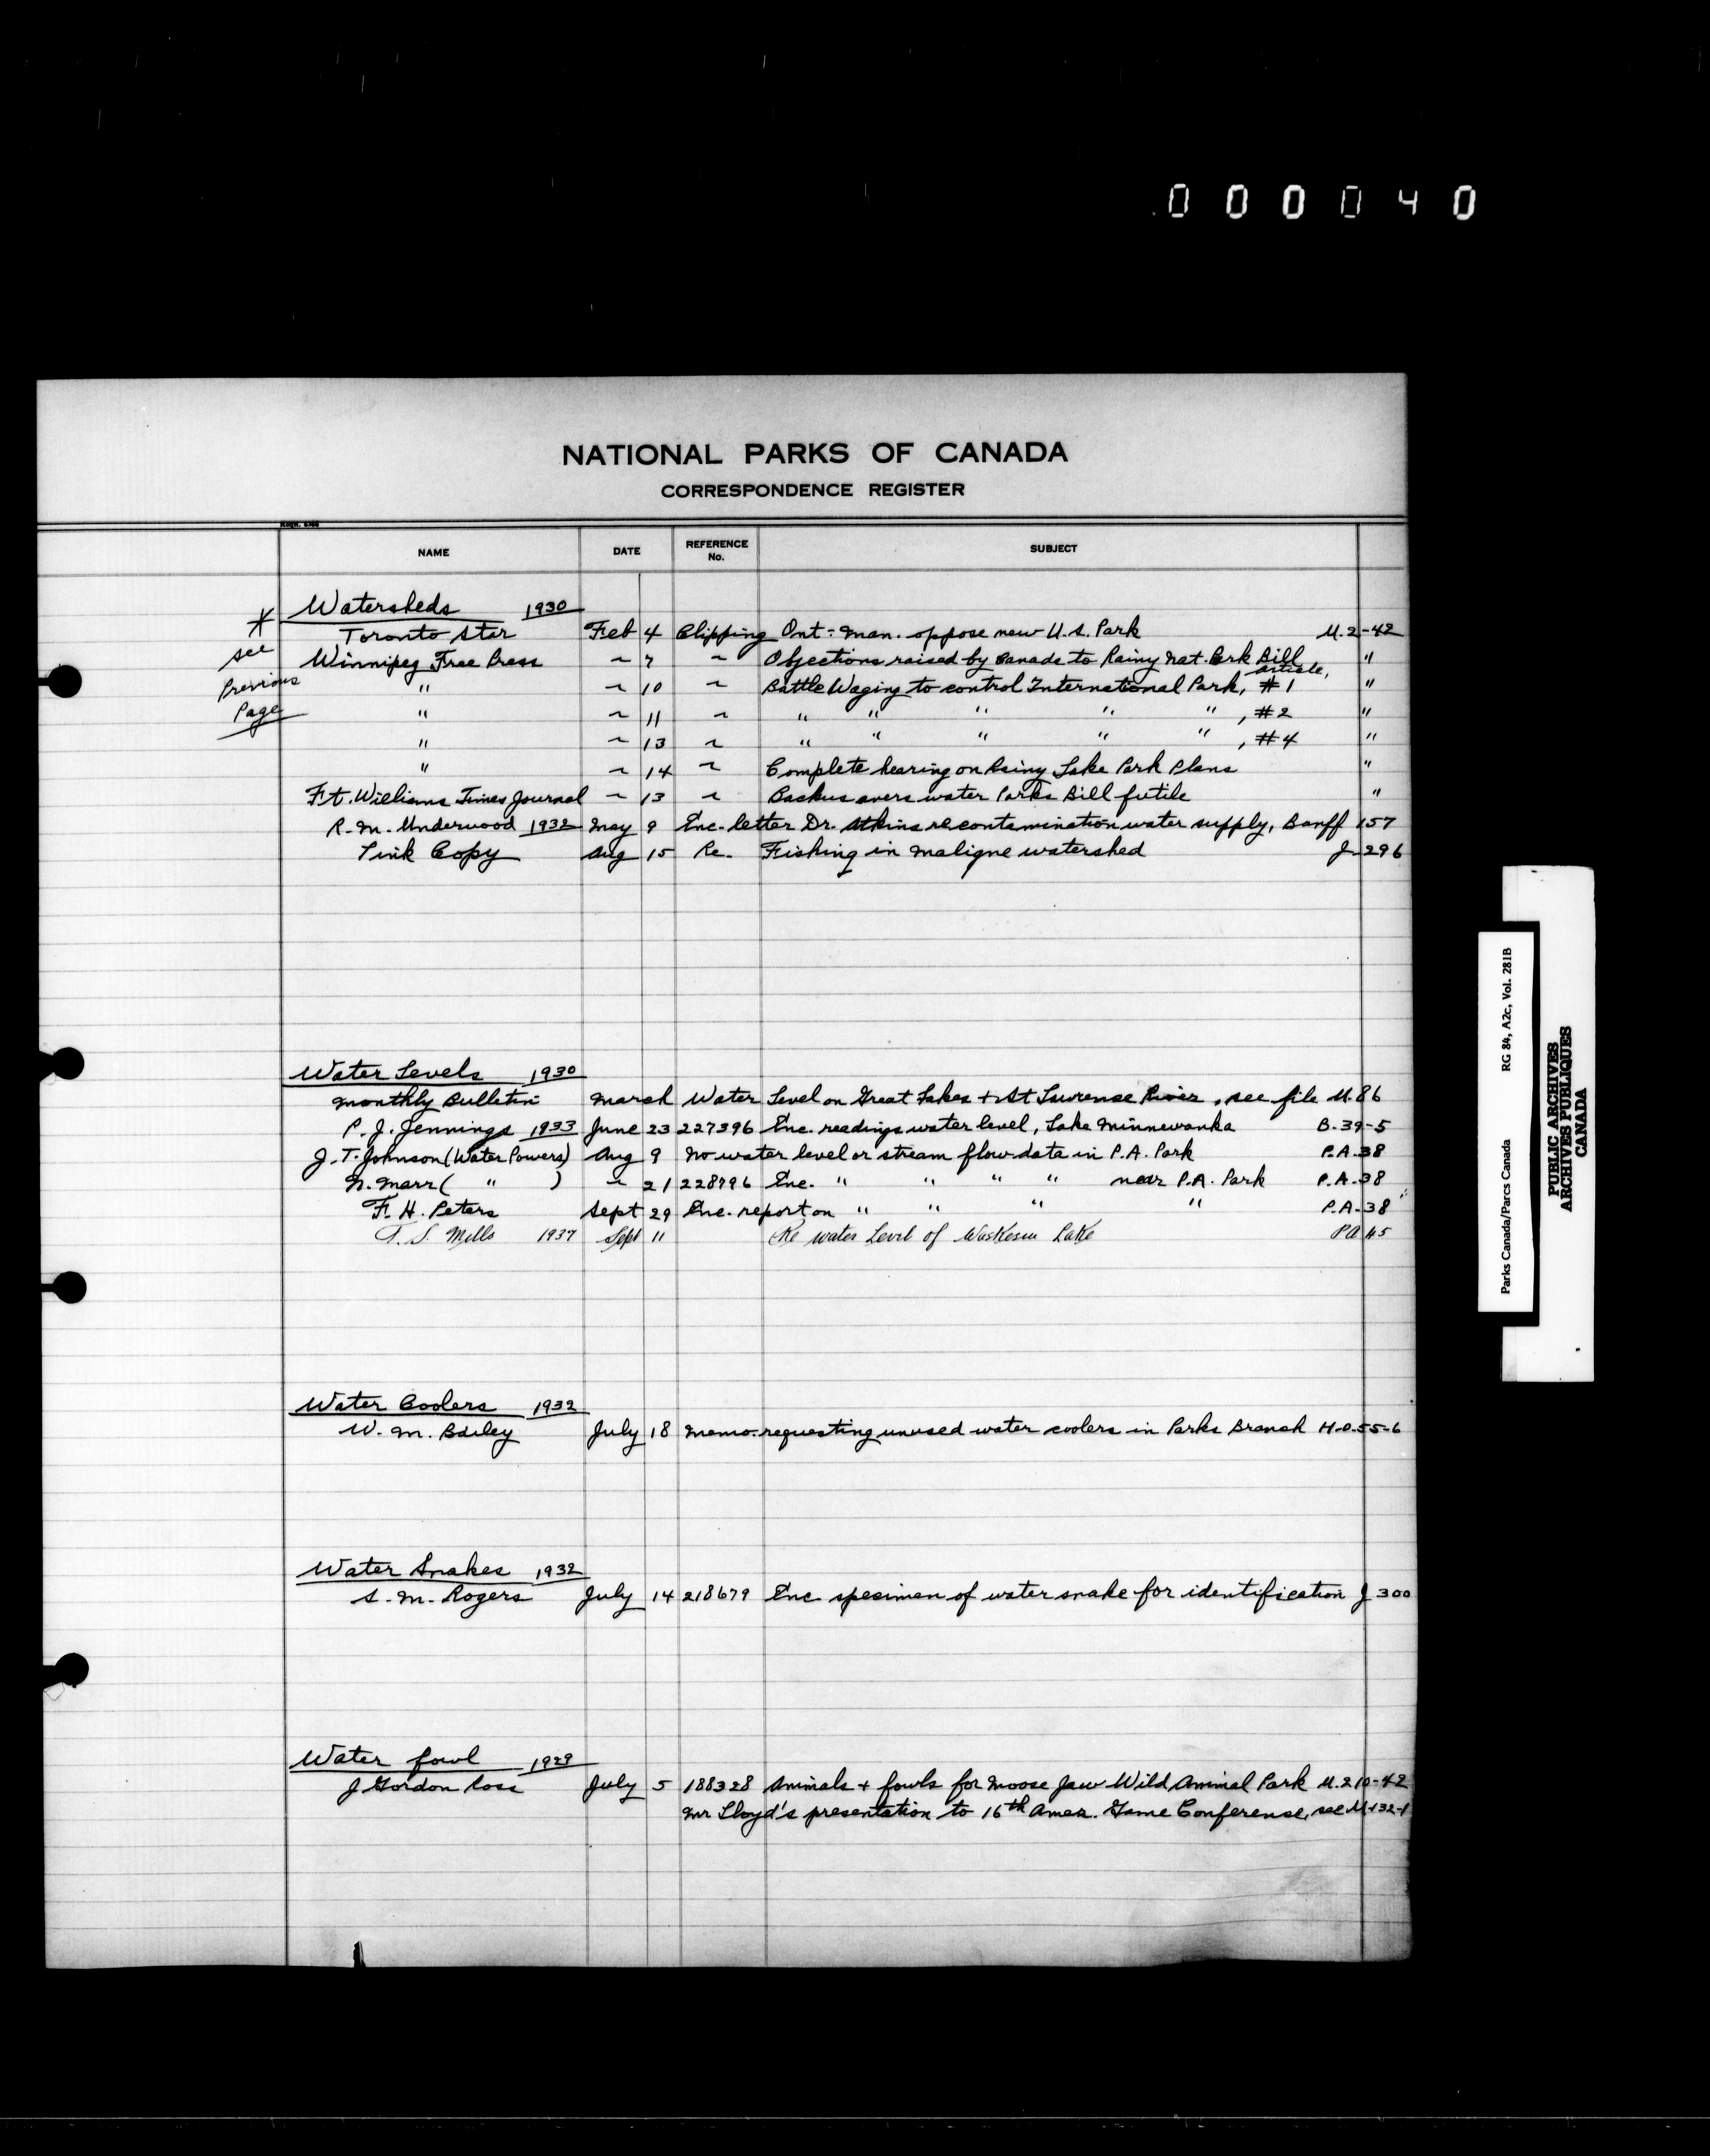 000040
NATIONAL PARKS OF CANADA
CORRESPONDENCE REGISTER
NAME DATE REFERENCE No. SUBJECT
Watersheds 1930
* see Previous Page
Toronto Star Feb 4 Clipping Ont-Man. oppose new U.S. Park U.2-42
Winnipeg Free Press ~ 7 ~ Objections raised by Canada to Rainy Nat. Park Bill "
" ~ 10 ~ Battle Waging to control International Park, article, #1 "
" ~ 11 ~ " " " " " , #2 "
" ~ 13 ~ " " " " " , #4 "
" ~ 14 ~ Complete hearing on Rainy Lake Park Plans "
Ft. Williams Times Journal ~ 13 ~ Backus avers water Parks Bill futile "
R. M. Underwood 1932 May 9 Enc. letter Dr. Atkins re contamination water supply, Banff 157
Pink Copy Aug 15 Re. Fishing in Maligne watershed J-296
Water Levels 1930
Monthly Bulletin March Water Level on Great Lakes + St Lawrence River, see file U.86
P. J. Jennings 1933 June 23 227396 Enc. readings water level, Lake Minnewanka B-39-5
J. T. Johnson (Water Powers) Aug 9 No water level or stream flow data in P.A. Park P.A.38
N. Marr ( " ) ~ 21 228796 Enc. " " " " near P.A. Park P.A.38
F. H. Peters Sept 29 Enc. report on " " " " P.A.38
T. S. Mills 1937 Sept 11 Re water Level of Waskesiu Lake PA 45
Water Coolers 1932
W. M. Bailey July 18 Memo. requesting unused water coolers in Parks Branch H.O.55-6
Water Snakes 1932
S. M. Rogers July 14 218679 Enc. specimen of water snake for identification J 300
Water fowl 1929
J Gordon Ross July 5 188328 Animals + fowls for Moose Jaw Wild Animal Park U.210-42
Mr Lloyd's presentation to 16th Amer. Game Conference, see U-132-1
Parks Canada/Parcs Canada RG 84, A2c, Vol. 281B
PUBLIC ARCHIVES
ARCHIVES PUBLIQUES
CANADA